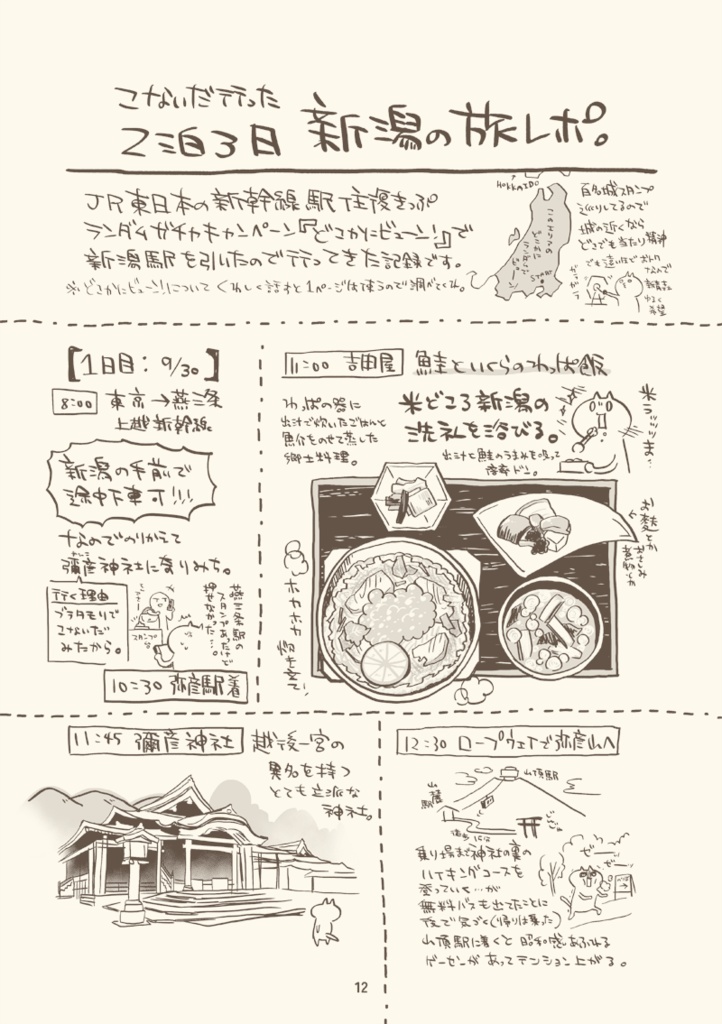 こないだ行った
2泊3日 新潟の旅レポ。
JR東日本の新幹線駅往復きっぷ
ランダムガチャキャンペーン『どこかにビューン!』で
新潟駅を引いたので行ってきた記録です。
※どこかにビューン!についてくわしく話すと1ページは使うので調べてくれ。
HOKKAIDO
START
百名城スタンプ
巡りしてるので
城の近くなら
どこでも当たり精神
でも遠いほどおトク
なんで
希望
【1日目: 9/30】
8:00 東京→燕三条
上越新幹線
新潟の手前で
途中下車可!!!
なのでのりかえて
彌彦神社に寄りみち。
行く理由
ブラタモリで
こないだ
みたから。
燕三条駅の
スタンプあったけど
押せなかった…。
スタンプ台
10:30 弥彦駅着
11:00 吉田屋 鮭といくらのわっぱ飯
わっぱの器に
出汁で炊いたごはんと
魚介をのせて蒸した
郷土料理。
米どころ新潟の
洗礼を浴びる。
出汁と鮭のうまみを吸って
米ラッッッま…
お麩とか
おさしみ
ホカホカ
11:45 彌彦神社
越後一宮の
異名を持つ
とても立派な
神社。
12:30 ロープウェイで弥彦山へ
山頂駅
山麓駅
乗り場まで神社の裏の
ハイキングコースを
登っていく…が
無料バスも出てたことに
後で気づく(帰りは乗った)
山頂駅に着くと昭和感あふれる
ゲーセンがあってテンション上がる。
ゼー
ゼー
12